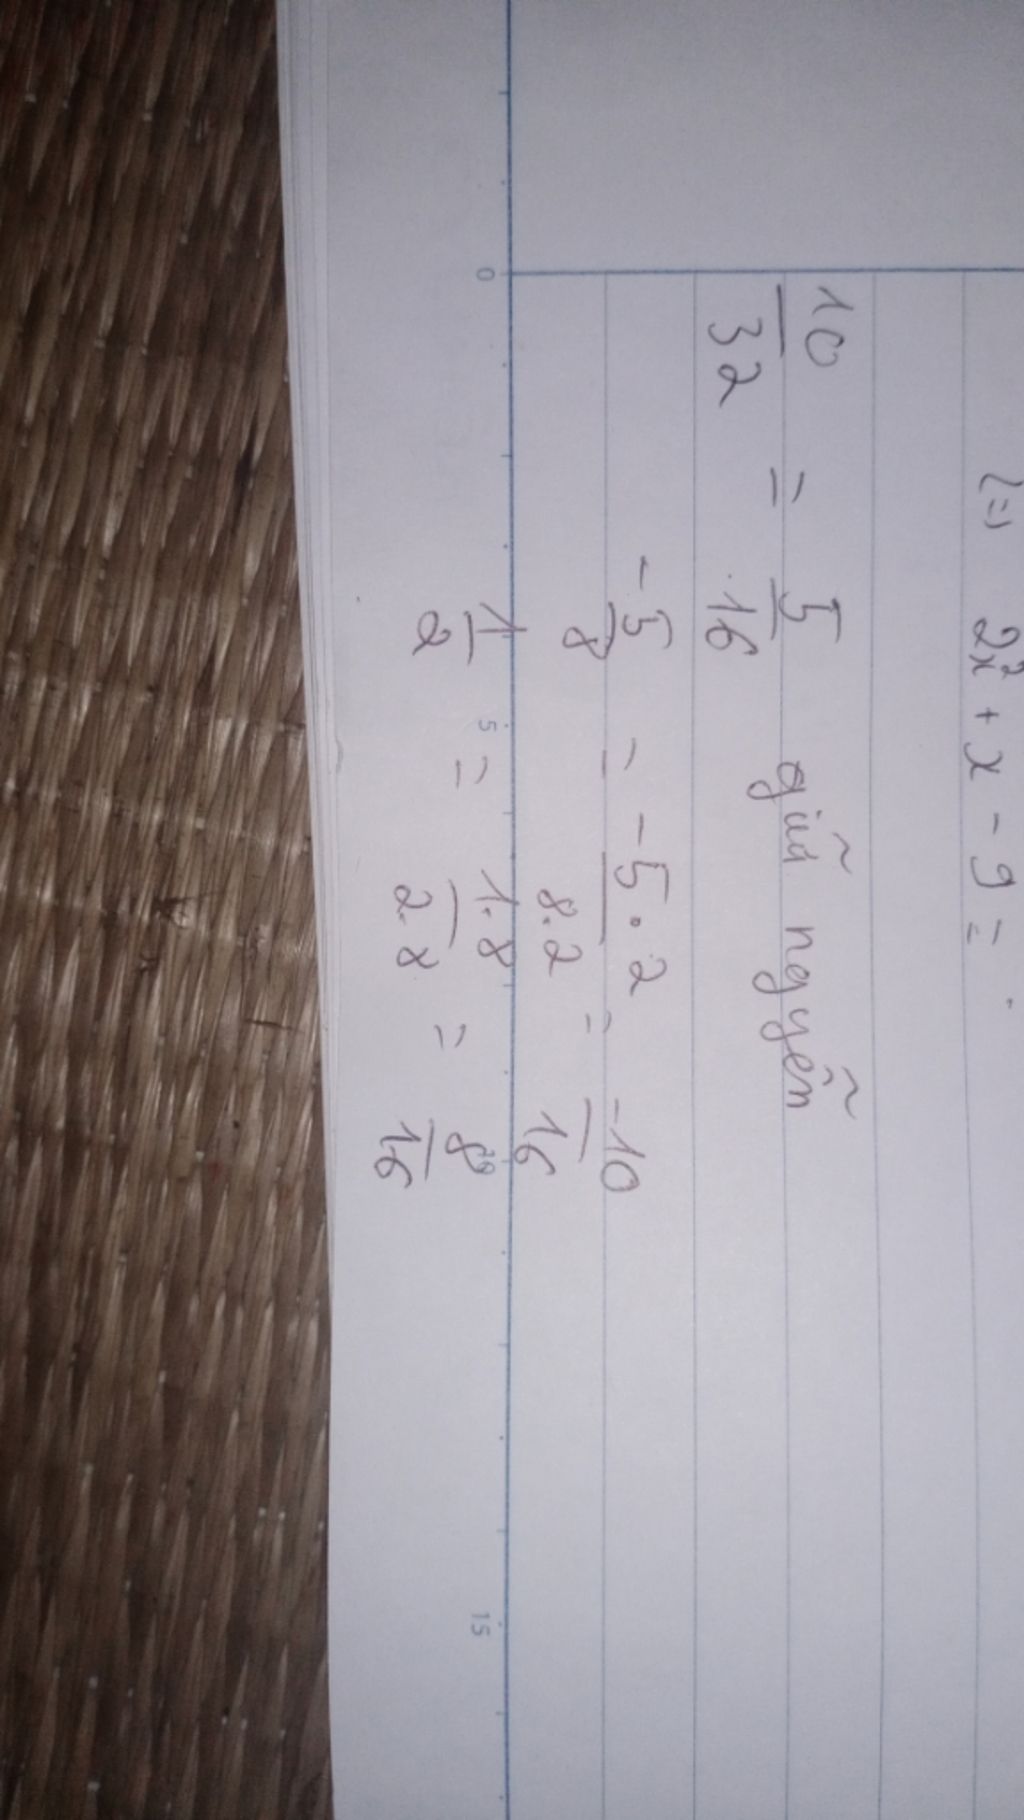 (=) 2x² + x - 9 =
10/32 = 5/16 giữ nguyễn
-5/8 = -5.2/8.2 = -10/16
1/2 = 1.8/2.8 = 8/16
0 5 10 15